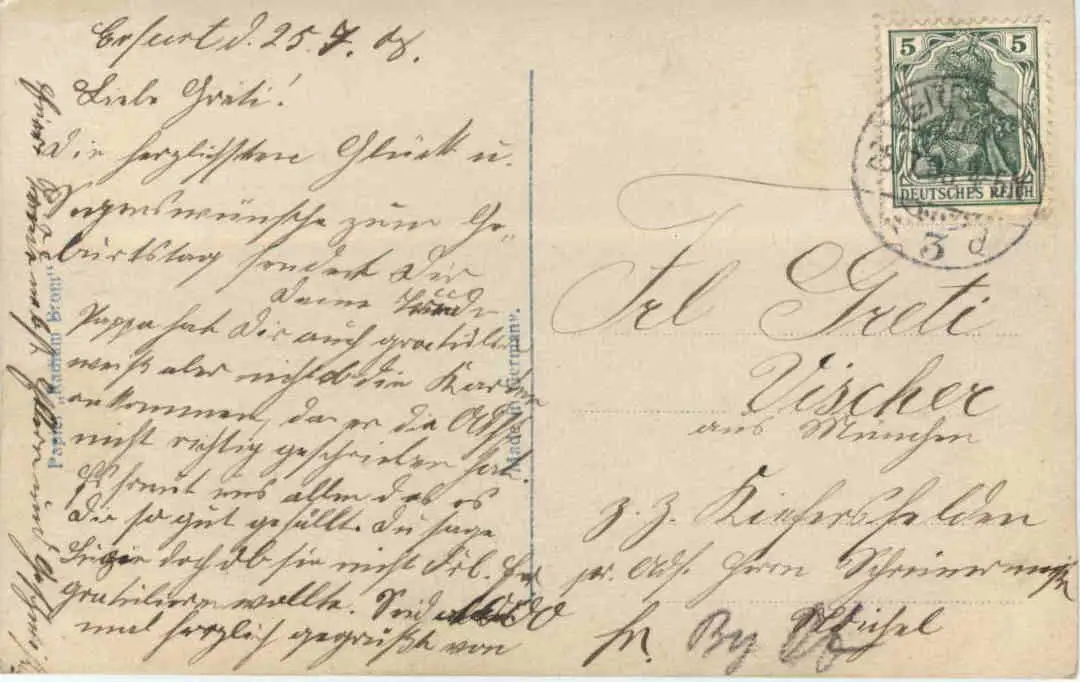 Erfurt d. 25.7.08.
Liebe Greti!
Die herzlichsten Glück u.
Segenswünsche zum Ge„
burtstag sendet Dir
Deine
Pappa hat Dir auch gratuliert
weiß aber nicht ob die Karten
ankommen, da er die Adr.
nicht richtig geschrieben hat.
Es freut uns allen das es
Dir so gut gefällt. Du sage
doch ob sie nicht Frl.
gratulieren wollte. Seid
mal herzlich gegrüßt von
Papier „Radium Brom“
Made in Germany.
5 5
DEUTSCHES REICH
3 d
Frl Greti
Vischer
aus München
z. Z. Kiefersfelden
pr. Adr. Herrn Schreinermeister
Michel